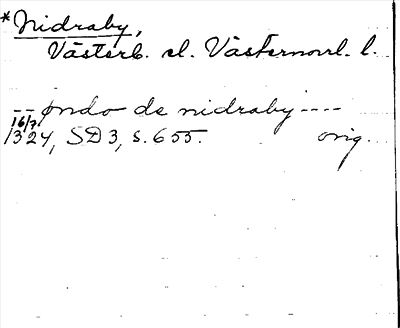 *Nidraby,
Västerb. el. Västernorrl. l.
-- ondo de nidraby ----
16/7
1324, SD 3, s. 655. orig.